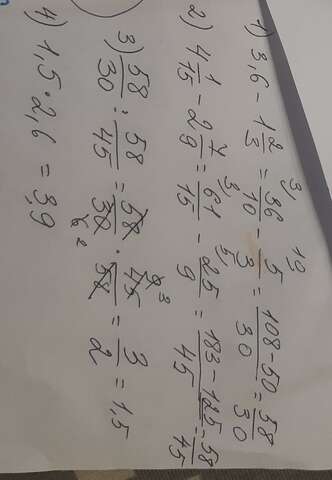 1) 3,6 - 1 2/3 = 36/10 - 5/3 = 108-50/30 = 58/30
2) 4 1/15 - 2 7/9 = 61/15 - 25/9 = 183-125/45 = 58/45
3) 58/30 : 58/45 = 58/30 · 45/58 = 3/2 = 1,5
4) 1,5 · 2,6 = 3,9